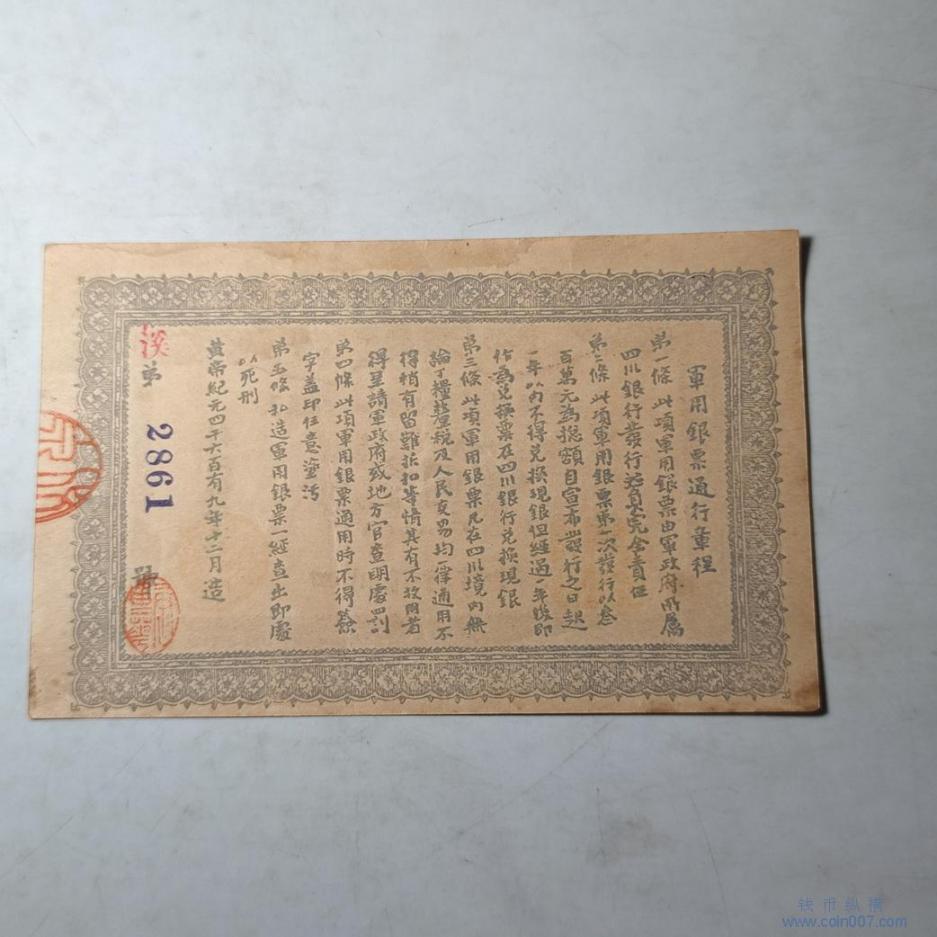 軍用銀票通行章程
第一條此項軍用銀票由軍政府所屬
四川銀行發行并負完全責任
第二條此項軍用銀票第一次發行以叁
百萬元為總額自宣布發行之日起
一年以內不得兌換現銀但經過一年後即
作為兌換票在四川銀行兌換現銀
第三條此項軍用銀票凡在四川境內無
論丁糧釐稅及人民交易均一律通用不
得稍有留難折扣等情其有不敢用者
得呈請軍政府或地方官查明處罰
第四條此項軍用銀票通用時不得簽
字蓋印任意塗污
第五條私造軍用銀票一經查出即處
以死刑
黃帝紀元四千六百有九年十二月造
溪第2861號
钱币纵横
www.coin007.com